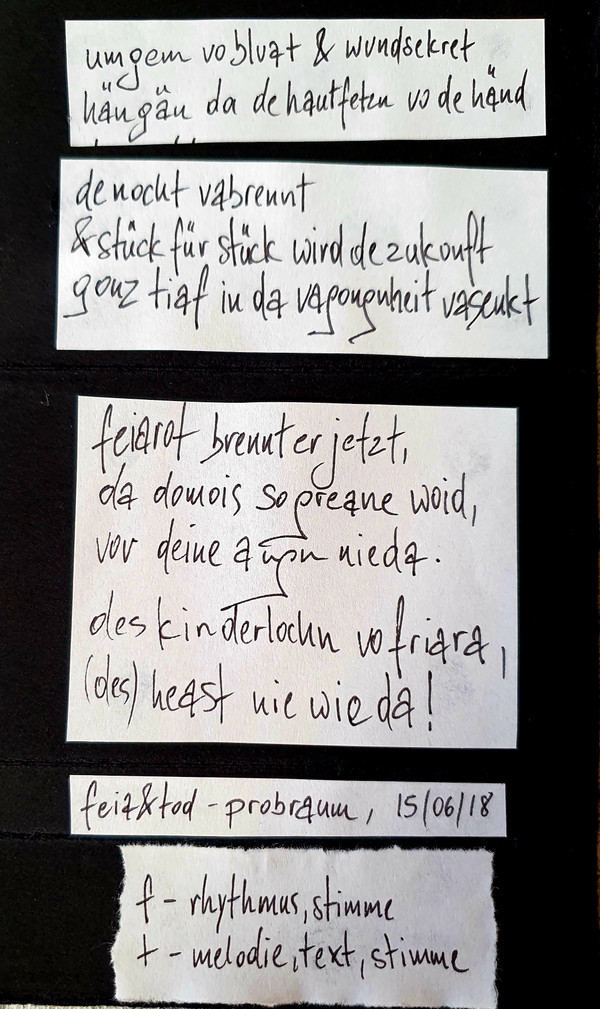 umgem vo bluat & wundsekret
hängän da de hautfetzn vo de händ
de nocht vabrennt
& stück für stück wird de zukonft
gonz tiaf in da vagongnheit vasenkt
feiarot brennt er jetzt,
da domois so greane woid,
vor deine augn nieda.
des kinderlochn vo friara,
(des) heast nie wieda!
feia & tod - probraum, 15/06/18
f - rhythmus, stimme
t - melodie, text, stimme